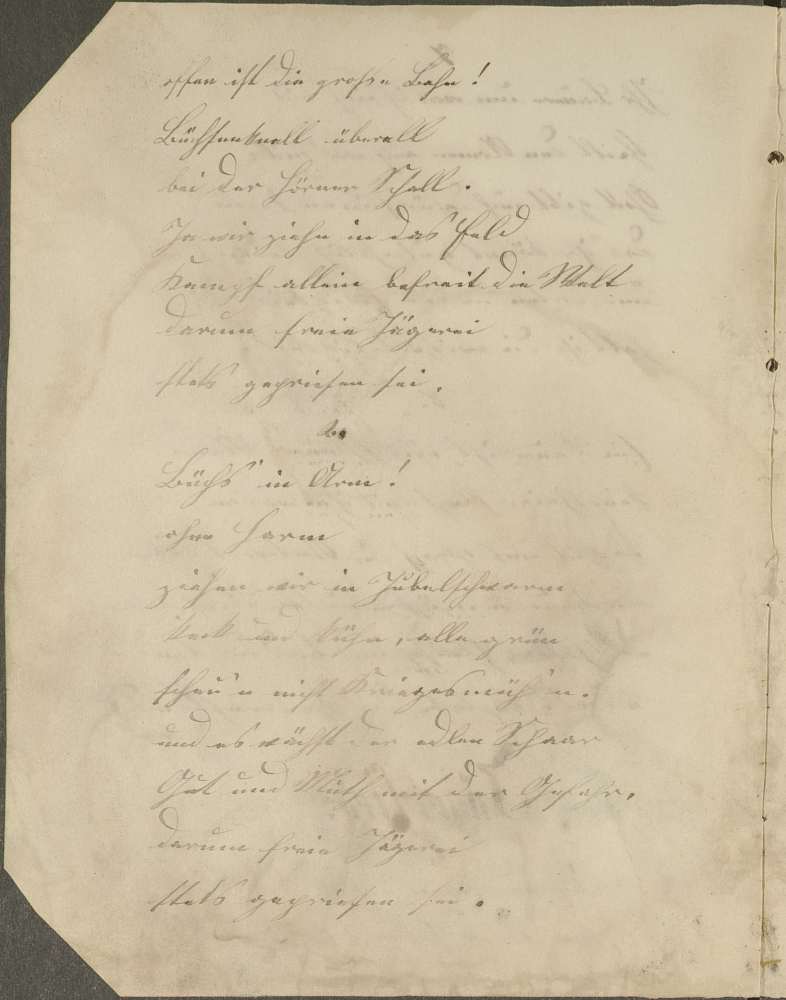 offen ist die große Bahn!
Büchsenknall überall
bei der Hörner Schall.
Ja wir ziehn in das Feld
Kampf allein befreit die Welt
darum freie Jägerei
stets gepriesen sei.
2.
Büchs' in Arm!
ohne Harm
ziehen wir in Jubelschwarm
keck und kühn, alle grün
scheu'n nicht Kriegesmüh'n.
und es wächst der edlen Schaar
Gut und Muth mit der Gefahr.
darum freie Jägerei
stets gepriesen sei.